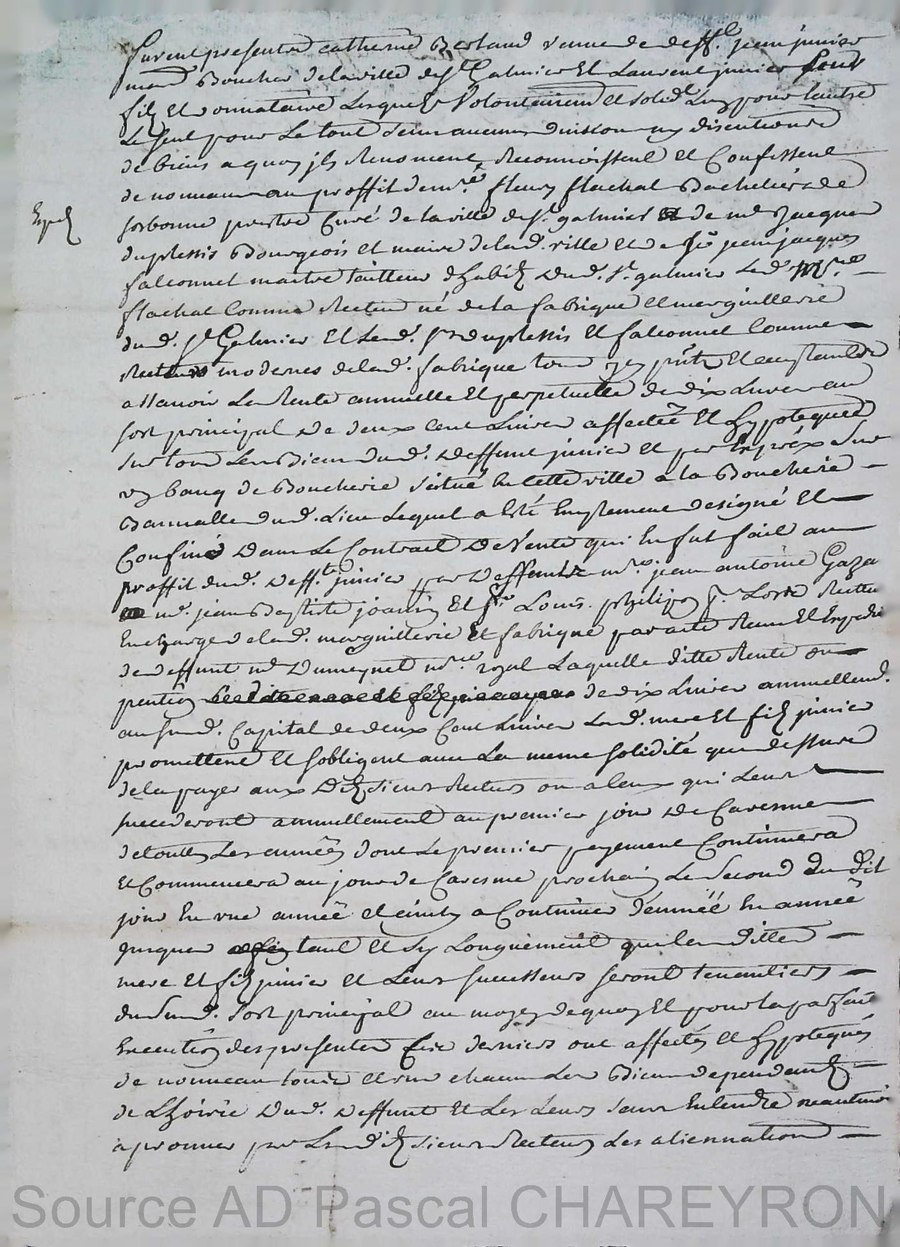 furent presentes catherine Berlaud veuve de deff.t jean junier
md Boucher de la ville de s.t Galmier Et Laurent junier son
filz Et donnataire Lesquels Volontairem.t et solid.t Lun pour lautre
Le seul pour Le tout sans aucune division ny discution de
de biens a quoy ils Renoncent, Reconnoissent Et Confessent
de nouveau au proffit de m.re fleury flachat Bachelier de
sorbonne prestre Curé de la ville de s.t galmier de m.e Jacques
duplessis Bourgeois et maire de lad. ville et de s.r jean jacques
falconnet maitre tailleur dhabitz dud. s.t galmier Led. m.re
flachat Comme Recteur né de la fabrique et marguillerie
dud. s.t Galmier Et Led. s.rs duplessis Et falconnet Comme
Recteurs modernes de lad. fabrique tous icy p.nts Et acceptants
assavoir La Rente annuelle Et perpetuelle de dix Livres au
sort principal de deux Cent Livres affectée Et hypotequée
sur tous Les Biens dud. deffunt junier et par Exprex sur
un bancq de Boucherie situé en Cette ville a La Boucherie
Bannalle dud. Lieu Lequel a Esté Amplement designé Et
Confiné dans Le Contract de Vente qui En fut fait au
proffit dud. deff.t junier par deffunts m.re jean antoine Gaza
m.e jean Baptiste joannin Et s.r Louis philipe Recteurs
En charge de lad. marguillerie Et fabrique par acte Receu Et Expedié
de deffunt m.e Dumeynet n.re royal Laquelle ditte Rente ou
pention de dix Livres annuellem.t
au susd. Capital de deux Cent Livres Lesd. mere Et filz junier
promettent Et sobligent avec La meme solidité que dessus
de la payer aux Ditz sieurs Recteurs ou a Ceux qui Leurs
succederont annuellement au premier jour de Caresme
de toutes Les années dont Le premier payement Continuera
Et Commencera au jour de Caresme prochain Le Second du dit
jour En une année et ainsy a Continuer dannéé En année
jusques tant Et sy Longuement que lesdittes
mere Et filz junier Et Leurs successeurs seront tenantiers
du Susd. sort principal au moyen de quoy Et pour la parfaite
Execution des presentes Ces derniers ont affectés Et hypotequés
de nouveau tous et un chacun Les Biens dependantz
de Lhoirie dud. deffunt Et Les Leurs sans Entendre neantmoins
approuver par Lesditz sieurs Recteurs Les aliennations
Exped.
Source AD Pascal CHAREYRON